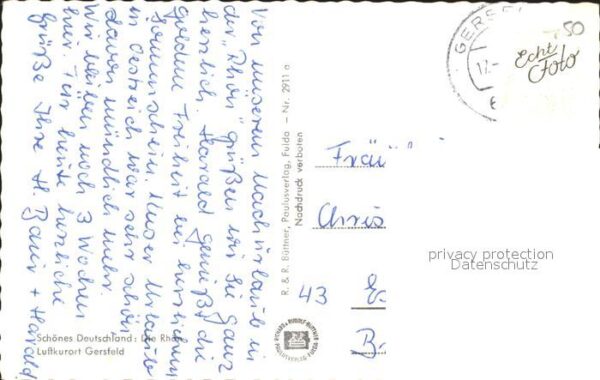 Von unserem Nachurlaub in
der „Rhön" grüßen wir Sie ganz
herzlich. Harald genießt die
goldene Freiheit im herrlichen
Sonnenschein. Unser Urlaub
in Oestreich war sehr schön
davon mündlich mehr.
Wir bleiben noch 3 Wochen
hier. Für heute herzliche
Grüße Ihre H. Baur + Harald
Schönes Deutschland: Die Rhön
Luftkurort Gersfeld
R. & R. Büttner, Paulusverlag, Fulda – Nr. 2911 a
Nachdruck verboten
GERS
12.-
6
50
Echt
Foto
Fräu
Chris
43
B
privacy protection
Datenschutz
RICHARD & RUDOLF BÜTTNER
PAULUSVERLAG FULDA